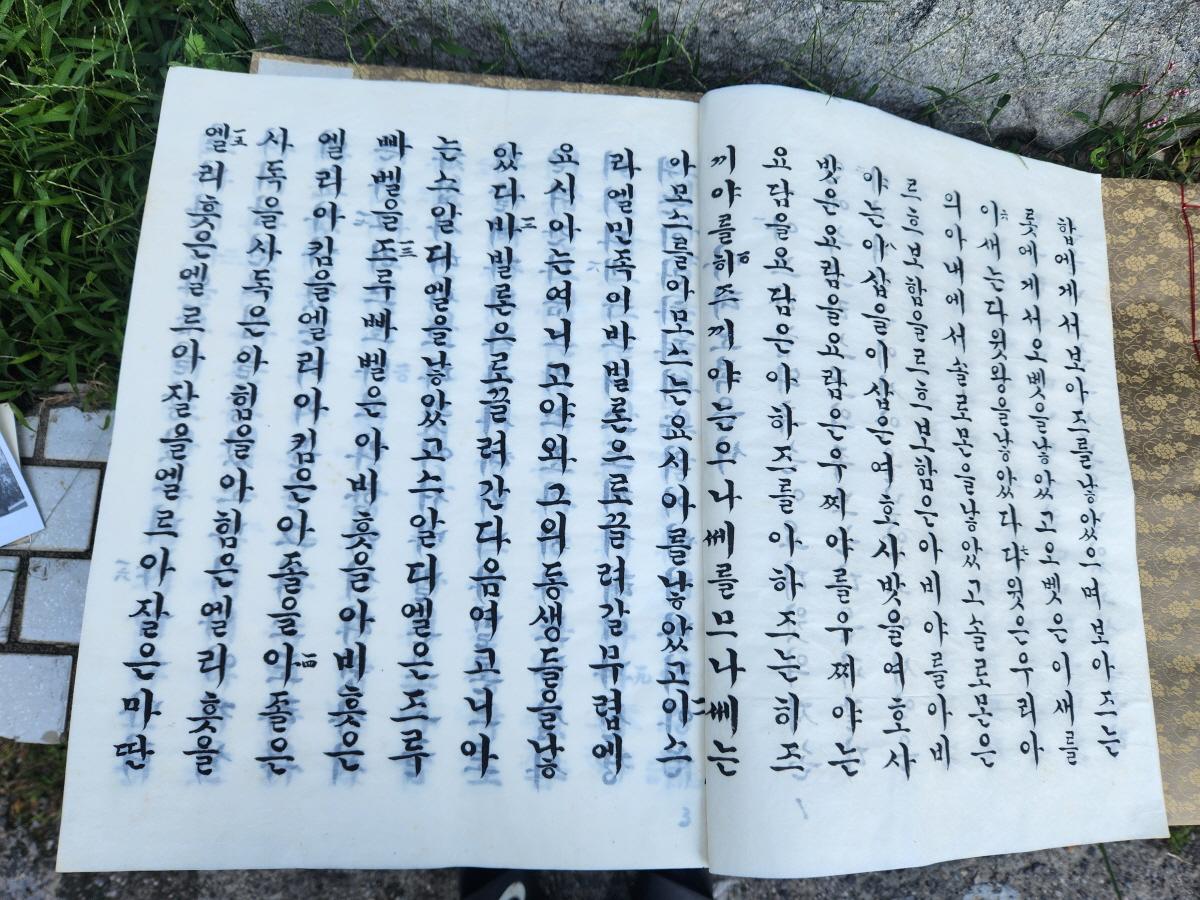 합에게서보아즈를낳았으며보아즈는
룻에게서오벳을낳았고오벳은이새를
이새는다윗왕을낳았다다윗은우리아
의아내에서솔로몬을낳았고솔로몬은
르흐보함을르흐보함은아비야를아비
야는아삽을아삽은여호사밧을여호사
밧은요람을요람은우찌야를우찌야는
요담을요담은아하즈를아하즈는히즈
끼야를히즈끼야는므나쎄를므나쎄는
아모스를아모스는요시아를낳았고이스
라엘민족이바빌론으로끌려갈무렵에
요시아는여니고야와그의동생들을낳
았다바빌론으로끌려간다음여고니아
는스알디엘을낳았고스알디엘은즈루
빠벨을즈루빠벨은아비훗을아비훗은
엘리아킴을엘리아킴은아졸을아졸은
사독을사독은아힘을아힘은엘리훗을
엘리훗은엘르아잘을엘르아잘은마딴